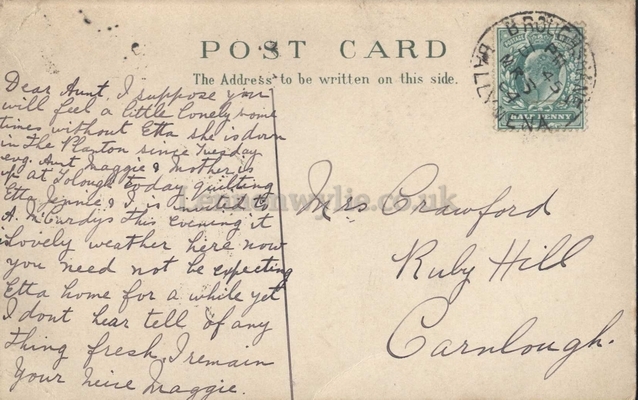 POST CARD
The Address to be written on this side.
Dear Aunt, I suppose you
will feel a little lonely some
times without Etta she is down
in the Planton since Tuesday
evg. Aunt Maggie & Mother is
up at Tologh today quilting
Etta, Jennie & I is invited to
A. McCurdys this evening it
is lovely weather here now
you need not be expecting
Etta home for a while yet
I dont hear tell of any
thing fresh. I remain
Your neice Maggie.
Mrs Crawford
Ruby Hill
Carnlough.
BROUGHSHANE
BALLYMENA
HALF PENNY
Lennonwylie.co.uk